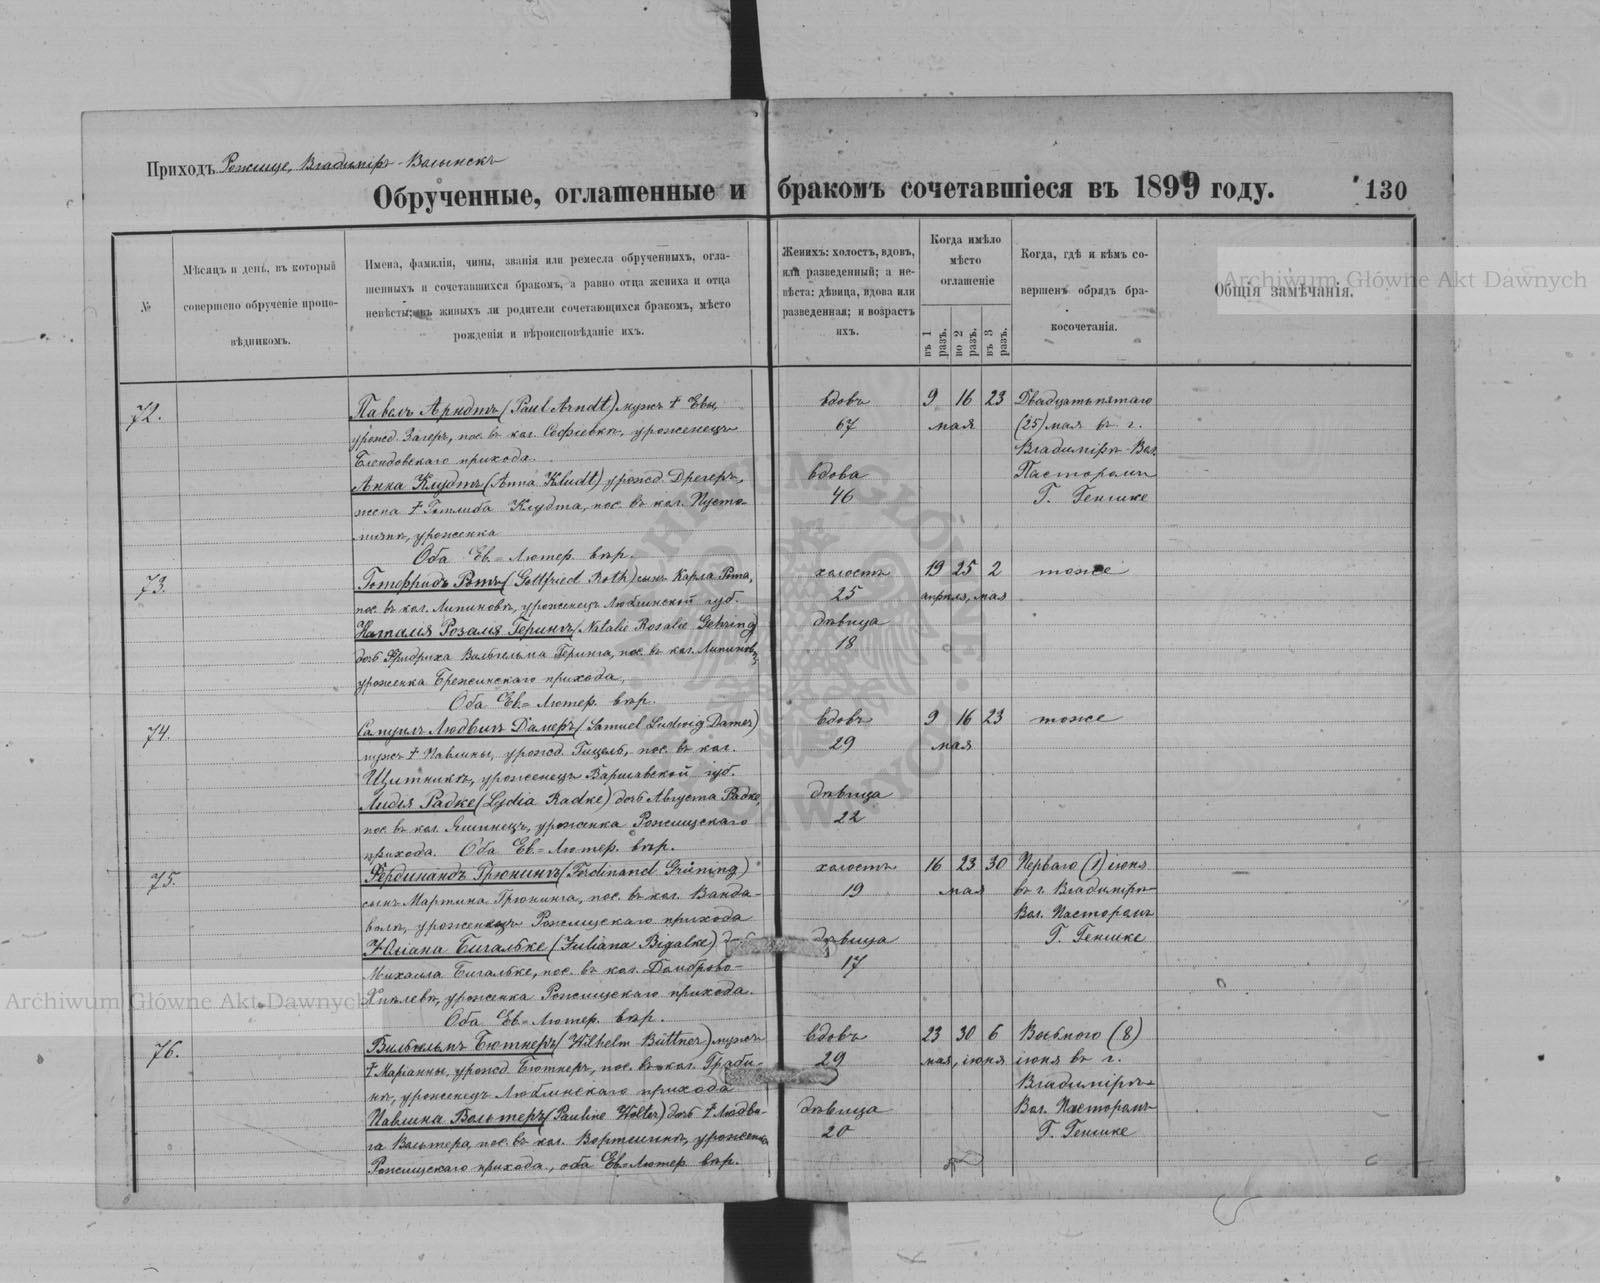 Приходъ Рожище, Владиміръ-Волынскъ
Обрученные, оглашенные и бракомъ сочетавшіеся въ 1899 году.
130
№
Мѣсяцъ и день, въ который
совершено обрученіе пропо-
вѣдникомъ.
Имена, фамиліи, чины, званія или ремесла обрученныхъ, огла-
шенныхъ и сочетавшихся бракомъ, а равно отца жениха и отца
невѣсты; въ живыхъ ли родители сочетающихся бракомъ, мѣсто
рожденія и вѣроисповѣданіе ихъ.
Женихъ: холостъ, вдовъ,
или разведенный; а не-
вѣста: дѣвица, вдова или
разведенная; и возрастъ
ихъ.
Когда имѣло
мѣсто
оглашеніе
въ 1 разъ.
во 2 разъ.
въ 3 разъ.
Когда, гдѣ и кѣмъ со-
вершенъ обрядъ бра-
косочетанія.
Общія замѣчанія.
Archiwum Główne Akt Dawnych
72.
Павелъ Арндтъ (Paul Arndt) мужъ † Евы,
урожд. Загеръ, пос. въ кол. Софіевкѣ, уроженецъ
Блендовскаго прихода.
Анна Клудтъ (Anna Kludt) урожд. Дрегеръ,
жена † Готлиба Клудта, пос. въ кол. Пусто-
мичкѣ, уроженка
Оба Ев.=Лютер. вѣр.
вдовъ
67
вдова
46
9 16 23
мая
Двадцатьпятаго
(25) мая въ г.
Владимірѣ-Вол.
Пасторомъ
Г. Геншке
73.
Готфридъ Ротъ (Gottfried Roth) сынъ Карла Рота,
пос. въ кол. Липиновкѣ, уроженецъ Люблинской губ.
Наталія Розалія Герингъ (Natalie Rosalie Gehring)
дочь Фридриха Вильгельма Геринга, пос. въ кол. Липиновкѣ,
уроженка Брежинскаго прихода,
Оба Ев.=Лютер. вѣр.
холостъ
25
дѣвица
18
19 25 2
апрѣля, мая
тоже
74.
Самуилъ Людвигъ Дамеръ (Samuel Ludwig Damer)
мужъ † Павлины, урожд. Гицель, пос. въ кол.
Щитникѣ, уроженецъ Варшавской губ.
Лидія Радке (Lydia Radke) дочь Августа Радке,
пос. въ кол. Яминецъ, уроженка Рожищскаго
прихода. Оба Ев.=Лютер. вѣр.
вдовъ
29
дѣвица
22
9 16 23
мая
тоже
75.
Фердинандъ Грюнингъ (Ferdinand Grüning)
сынъ Мартина Грюнинга, пос. въ кол. Ванда-
волѣ, уроженецъ Рожищскаго прихода
Юліана Бигальке (Juliana Bigalke)
Михаила Бигальке, пос. въ кол. Домброво-
Хмѣлевѣ, уроженка Рожищскаго прихода.
Оба Ев.=Лютер. вѣр.
холостъ
19
дѣвица
17
16 23 30
мая
Перваго (1) іюня
въ г. Владимірѣ-
Вол. Пасторомъ
Г. Геншке
76.
Вильгельмъ Бютнеръ (Wilhelm Büttner) мужъ
† Маріанны, урожд. Бютнеръ, пос. въ кол. Граби-
нѣ, уроженецъ Люблинскаго прихода
Павлина Вольтеръ (Pauline Wolter) дочь † Людви-
га Вольтера, пос. въ кол. уроженка
Рожищскаго прихода, оба Ев.=Лютер. вѣр.
вдовъ
29
дѣвица
20
23 30 6
мая, іюня
Восьмого (8)
іюня въ г.
Владимірѣ-
Вол. Пасторомъ
Г. Геншке
Archiwum Główne Akt Dawnych